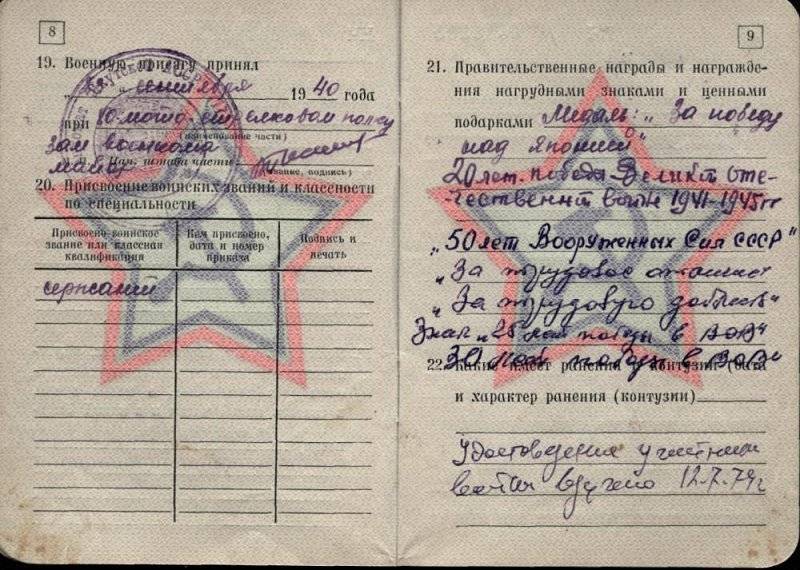 8
19. Военную присягу принял
сентября 1940 года
при 10 мото-стрелковом полку
(наименование части)
Зам военкома
майор Нач. штаба части
(звание, подпись)
20. Присвоение воинских званий и классности
по специальности
Присвоено воинское звание или классная квалификация
Кем присвоено, дата и номер приказа
Подпись и печать
9
21. Правительственные награды и награжде-
ния нагрудными знаками и ценными
подарками Медаль: „За победу
над Японией"
20 лет. победа Великой Оте-
чественной войне 1941-1945 гг
„50 лет Вооруженных Сил СССР"
„За трудовое отличие
„За трудовую доблесть"
Знак „25 лет победы в ВОВ"
30 лет победы в ВОВ"
22. Какие имеет ранения и контузии (дата
и характер ранения (контузии)
Удостоверение участника
войны вручено 12.7.79г